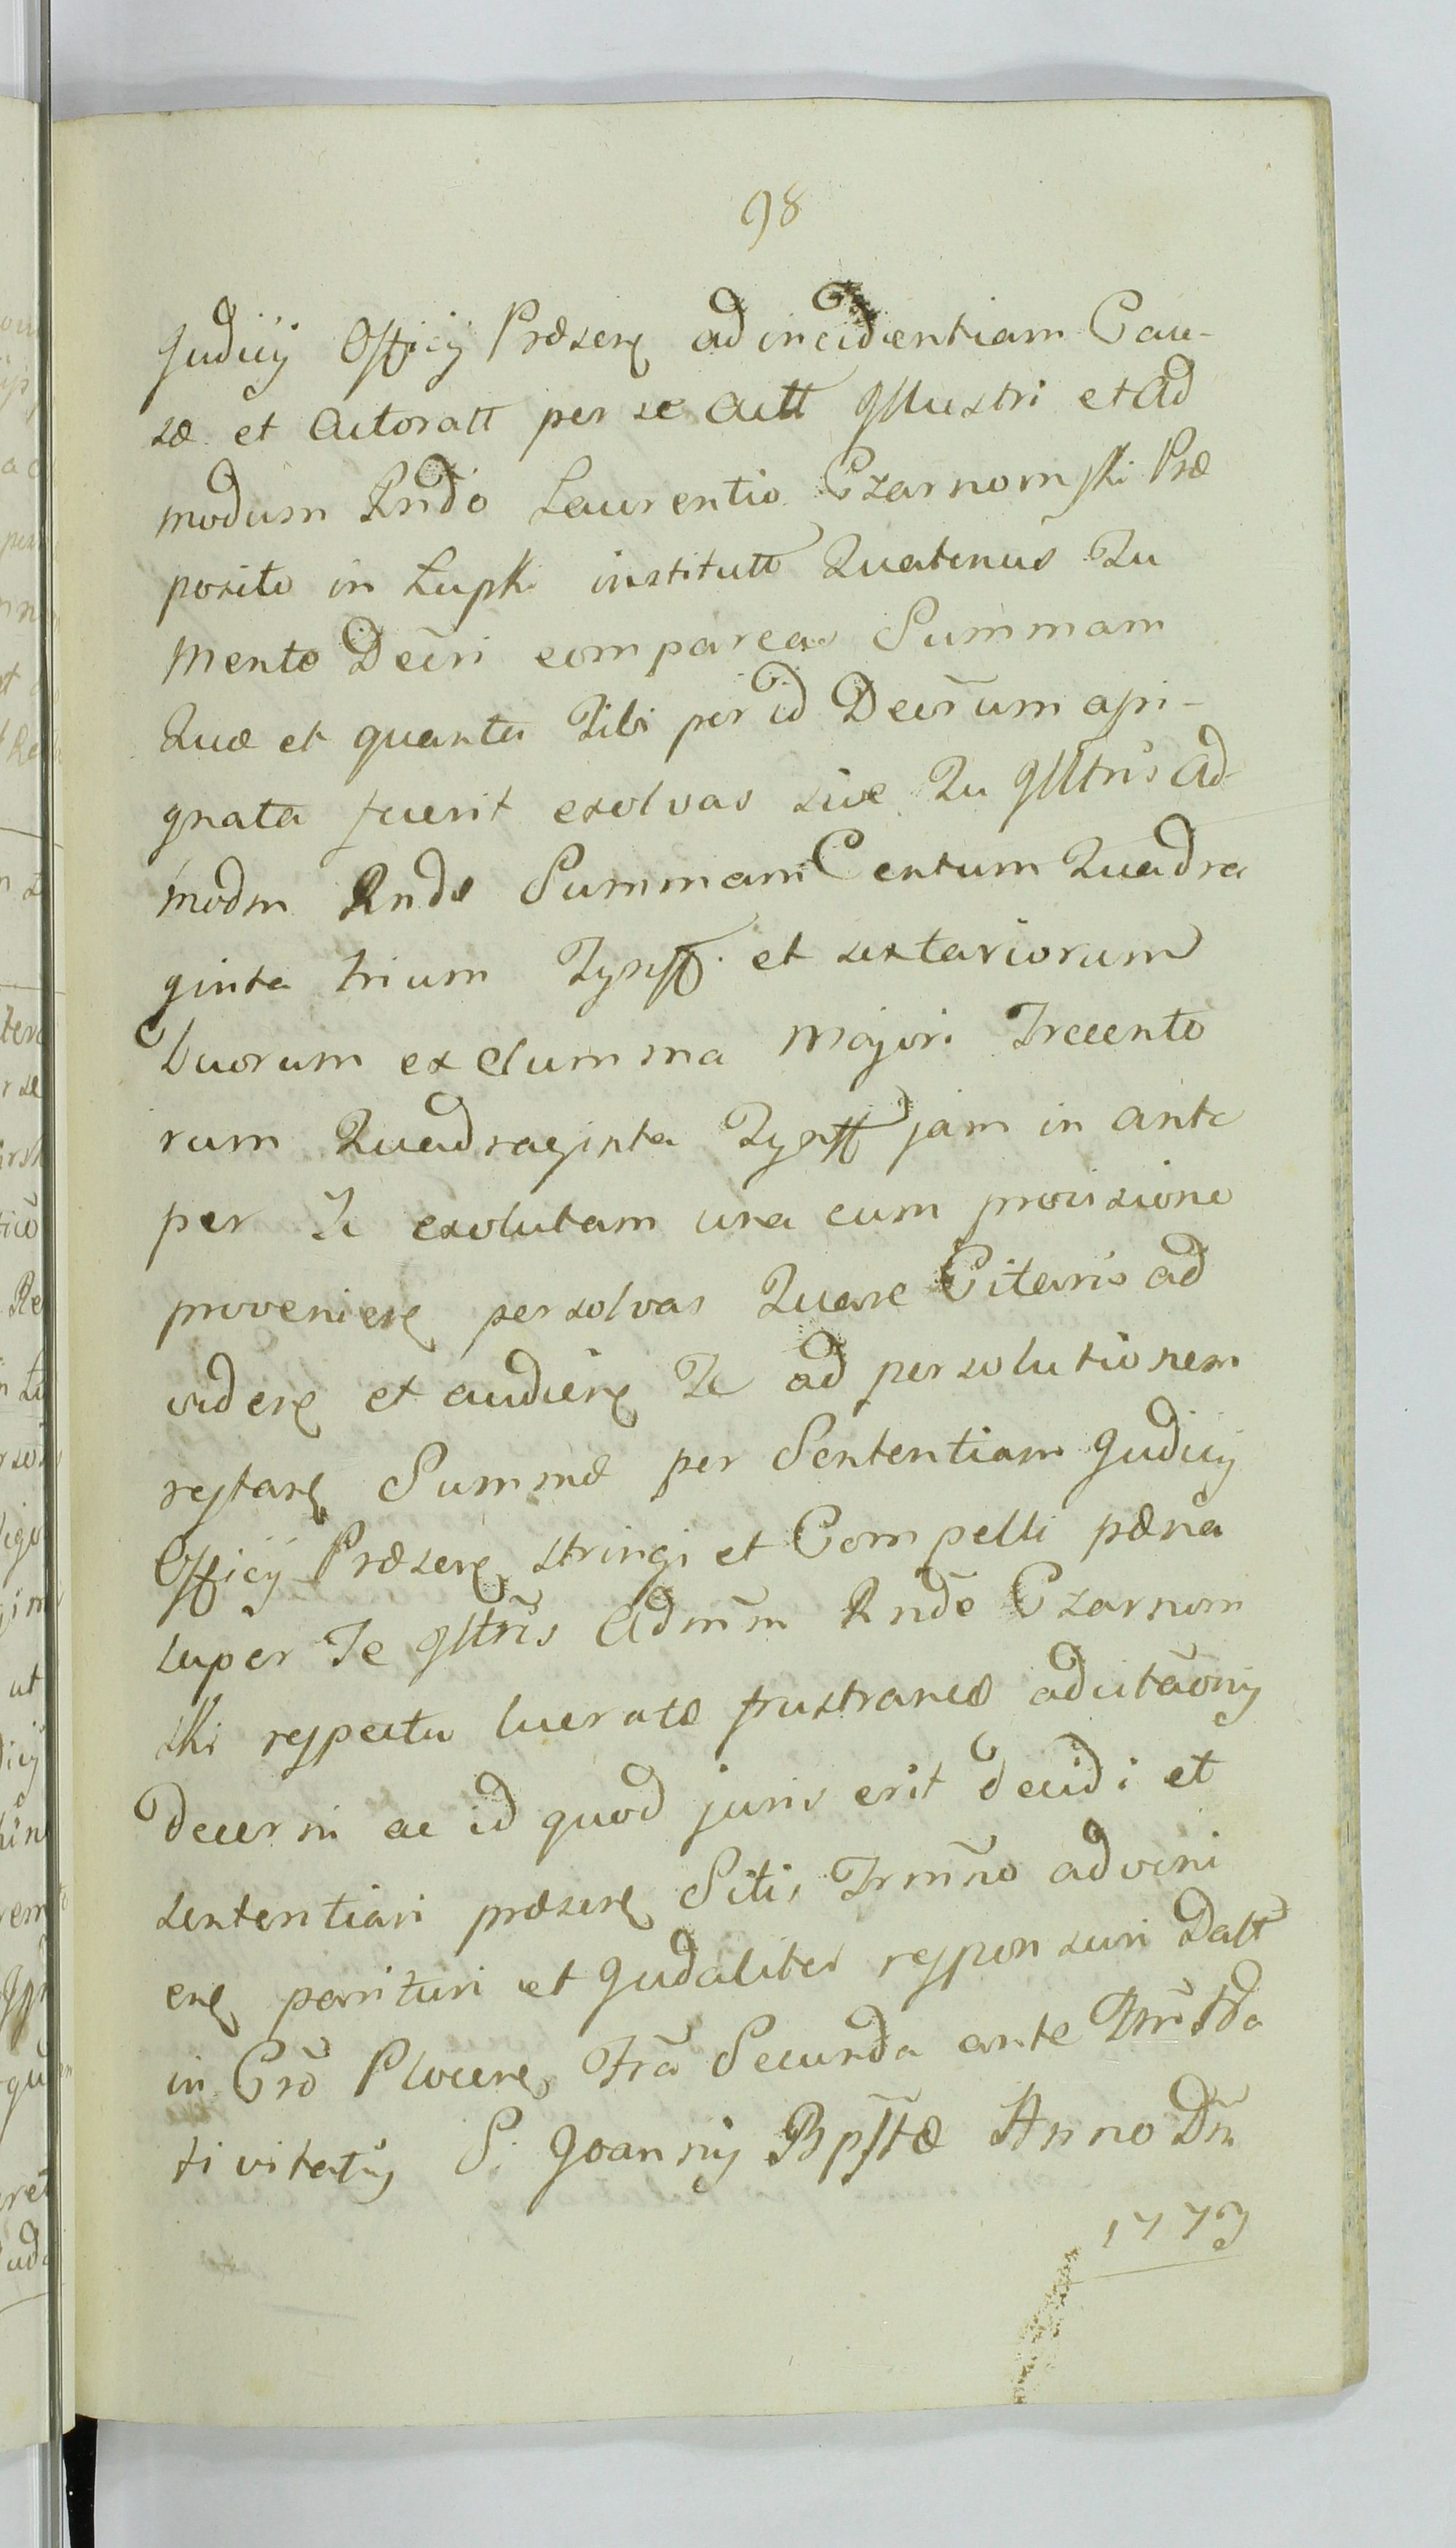 98
Judicij Officij Præsen ad incidentiam Cau-
sæ et Actoratt per se Actt Jllustri et Ad
modum Rndo Laurentio Czarnomski Præ
posito in Łupki institutt Quatenus Tu
mento Decri compareas Summam
Quæ et quanta Tibi per id Decrum assi-
gnata fuerit exolvas sive Tu Jlltris Ad-
modm Rnde Summam Centum Quadra
ginta trium Tynff. et sextariorum
Duorum ex Summa Majori Trecento
rum Quadraginta Tynff jam in ante
per Te exolutam una cum provisione
provenien persolvas Quare Citaris ad
viden et audien Te ad persolutionem
restan Summæ per Sententiam Judicij
Officij Præsen stringi et Compelli pæna
super Te Jlltris Admm Rnde Czarnom
ski respectu lucratæ frustraneæ adcitaonis
Decerni ac id quod juris erit decidi et
sententiari præsen Sitis Trmno adveni
en parituri et Judaliter responsuri Datt
in Cro Plocen Fra Secunda ante
tivitatis S. Joannis Bpttæ Anno Dni
1773